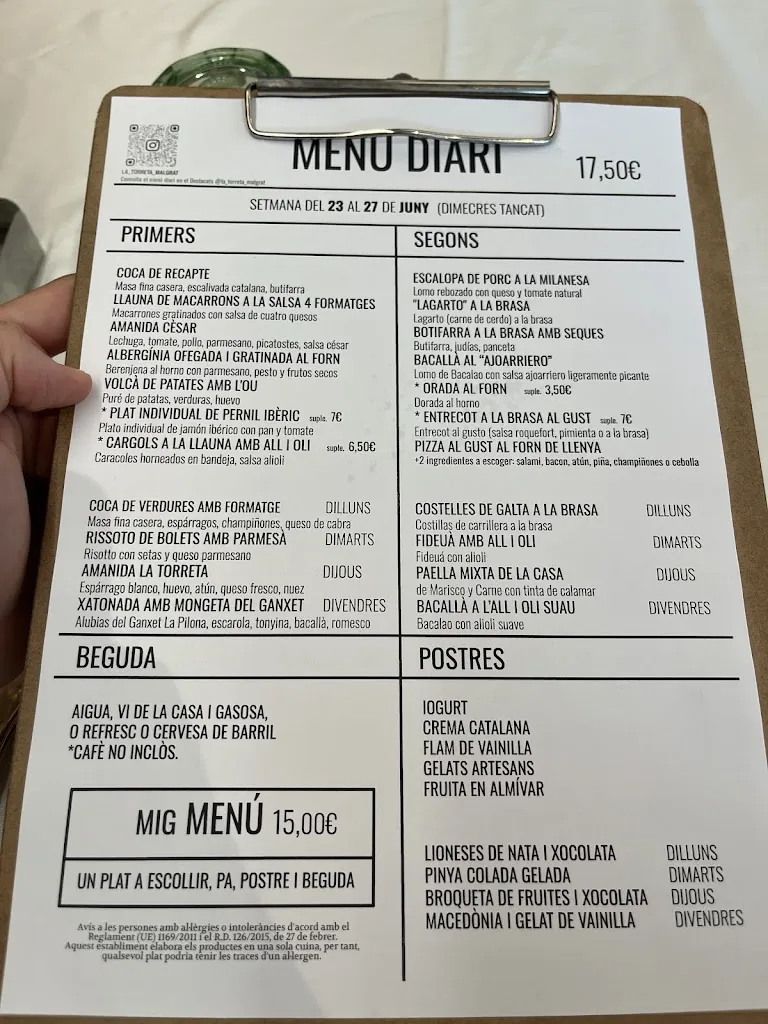 MENÚ DIARI
17,50€
LA_TORRETA_MALGRAT
Consulta el menú diari en el Destacats @la_torreta_malgrat
SETMANA DEL 23 AL 27 DE JUNY (DIMECRES TANCAT)
PRIMERS
COCA DE RECAPTE
Masa fina casera, escalivada catalana, butifarra
LLAUNA DE MACARRONS A LA SALSA 4 FORMATGES
Macarrones gratinados con salsa de cuatro quesos
AMANIDA CÈSAR
Lechuga, tomate, pollo, parmesano, picatostes, salsa césar
ALBERGÍNIA OFEGADA I GRATINADA AL FORN
Berenjena al horno con parmesano, pesto y frutos secos
VOLCÀ DE PATATES AMB L'OU
Puré de patatas, verduras, huevo
* PLAT INDIVIDUAL DE PERNIL IBÈRIC suple. 7€
Plato individual de jamón ibérico con pan y tomate
* CARGOLS A LA LLAUNA AMB ALL I OLI suple. 6,50€
Caracoles horneados en bandeja, salsa alioli
COCA DE VERDURES AMB FORMATGE DILLUNS
Masa fina casera, espárragos, champiñones, queso de cabra
RISSOTO DE BOLETS AMB PARMESÀ DIMARTS
Risotto con setas y queso parmesano
AMANIDA LA TORRETA DIJOUS
Espárrago blanco, huevo, atún, queso fresco, nuez
XATONADA AMB MONGETA DEL GANXET DIVENDRES
Alubias del Ganxet La Pilona, escarola, tonyina, bacallà, romesco
SEGONS
ESCALOPA DE PORC A LA MILANESA
Lomo rebozado con queso y tomate natural
"LAGARTO" A LA BRASA
Lagarto (carne de cerdo) a la brasa
BOTIFARRA A LA BRASA AMB SEQUES
Butifarra, judías, panceta
BACALLÀ AL "AJOARRIERO"
Lomo de Bacalao con salsa ajoarriero ligeramente picante
* ORADA AL FORN suple. 3,50€
Dorada al horno
* ENTRECOT A LA BRASA AL GUST suple. 7€
Entrecot al gusto (salsa roquefort, pimienta o a la brasa)
PIZZA AL GUST AL FORN DE LLENYA
+2 ingredientes a escoger: salami, bacon, atún, piña, champiñones o cebolla
COSTELLES DE GALTA A LA BRASA DILLUNS
Costillas de carrillera a la brasa
FIDEUÀ AMB ALL I OLI DIMARTS
Fideuá con alioli
PAELLA MIXTA DE LA CASA DIJOUS
de Marisco y Carne con tinta de calamar
BACALLÀ A L'ALL I OLI SUAU DIVENDRES
Bacalao con alioli suave
BEGUDA
AIGUA, VI DE LA CASA I GASOSA,
O REFRESC O CERVESA DE BARRIL
*CAFÈ NO INCLÒS.
MIG MENÚ 15,00€
UN PLAT A ESCOLLIR, PA, POSTRE I BEGUDA
Avís a les persones amb al·lèrgies o intoleràncies d'acord amb el
Reglament (UE) 1169/2011 i el R.D. 126/2015, de 27 de febrer.
Aquest establiment elabora els productes en una sola cuina, per tant,
qualsevol plat podria tenir les traces d'un al·lergen.
POSTRES
IOGURT
CREMA CATALANA
FLAM DE VAINILLA
GELATS ARTESANS
FRUITA EN ALMÍVAR
LIONESES DE NATA I XOCOLATA DILLUNS
PINYA COLADA GELADA DIMARTS
BROQUETA DE FRUITES I XOCOLATA DIJOUS
MACEDÒNIA I GELAT DE VAINILLA DIVENDRES